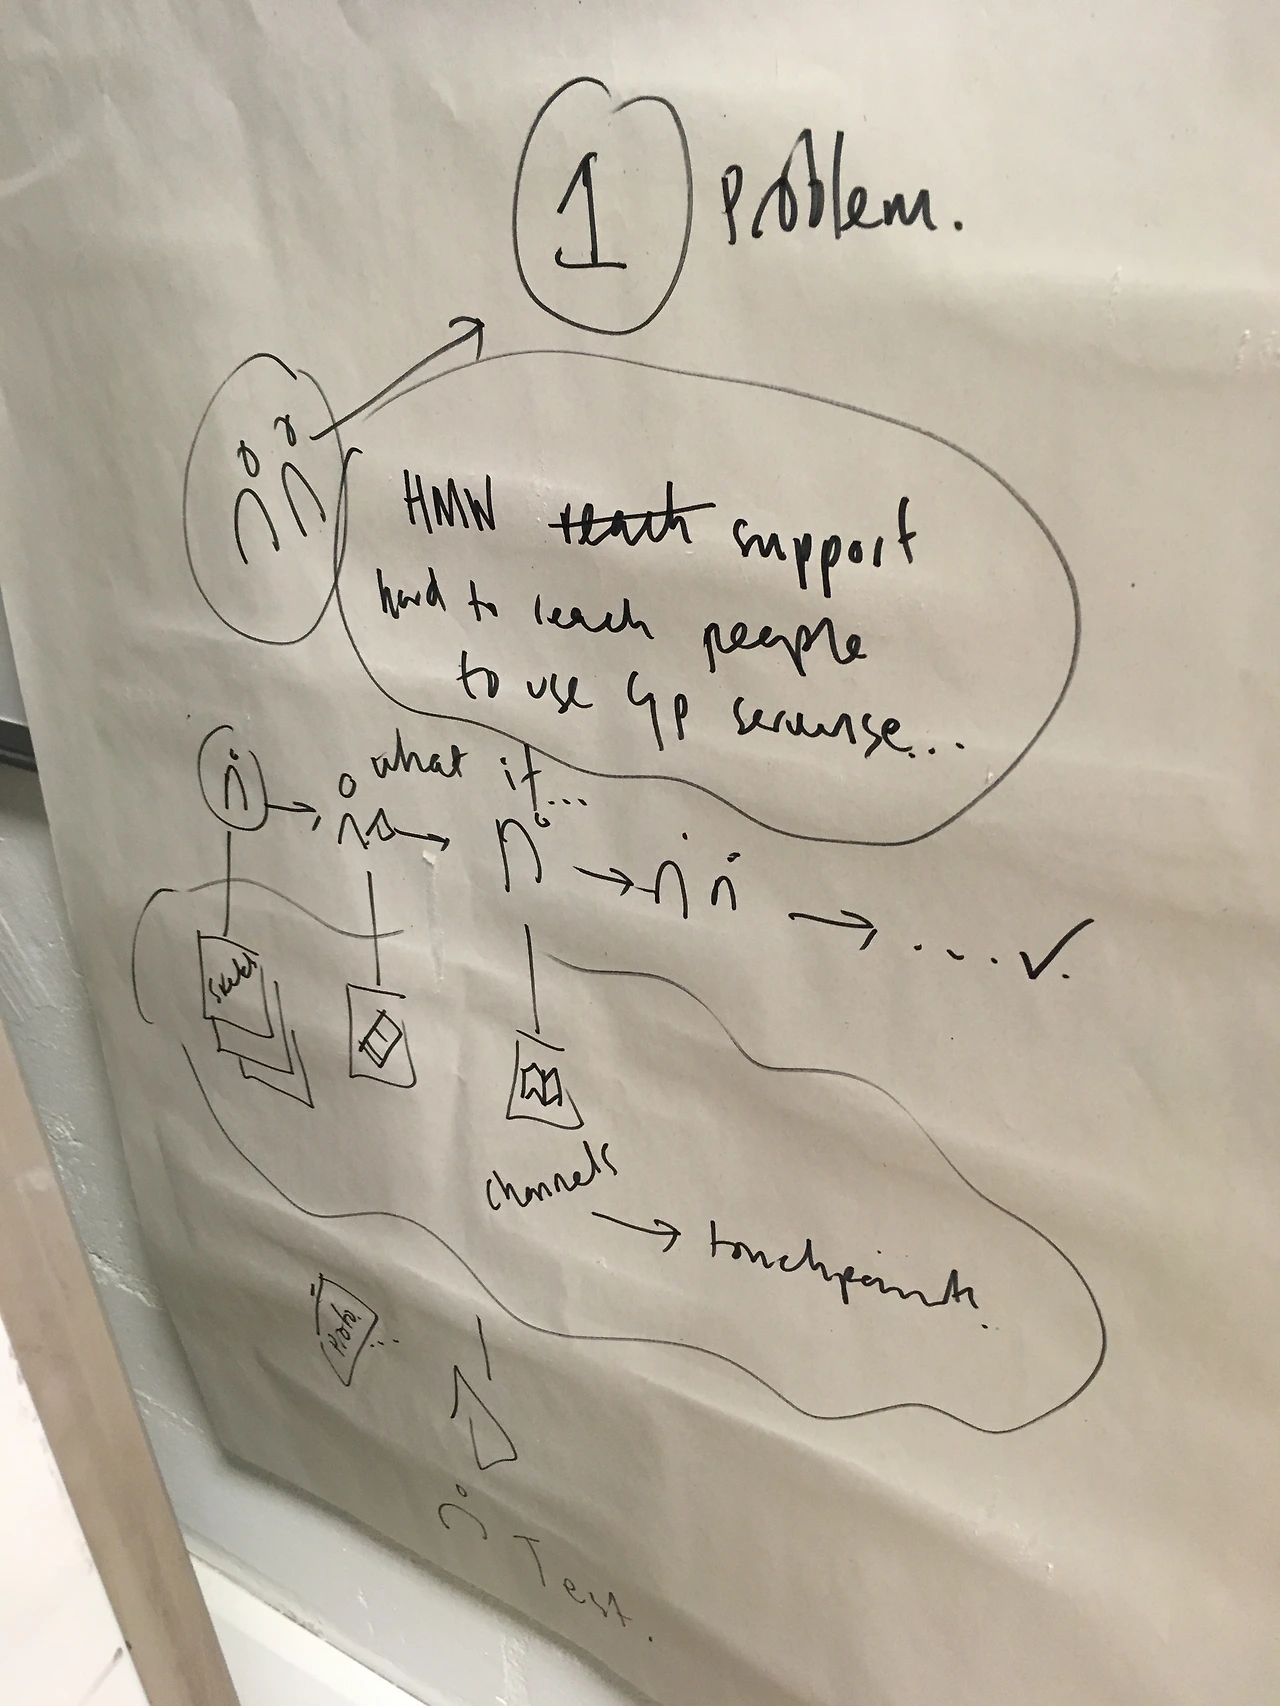 1 Problem.
HMW reach support
hard to reach people
to use GP serverse...
what if...
Sketch
channels
→ touchpoints.
Proto.
Test.